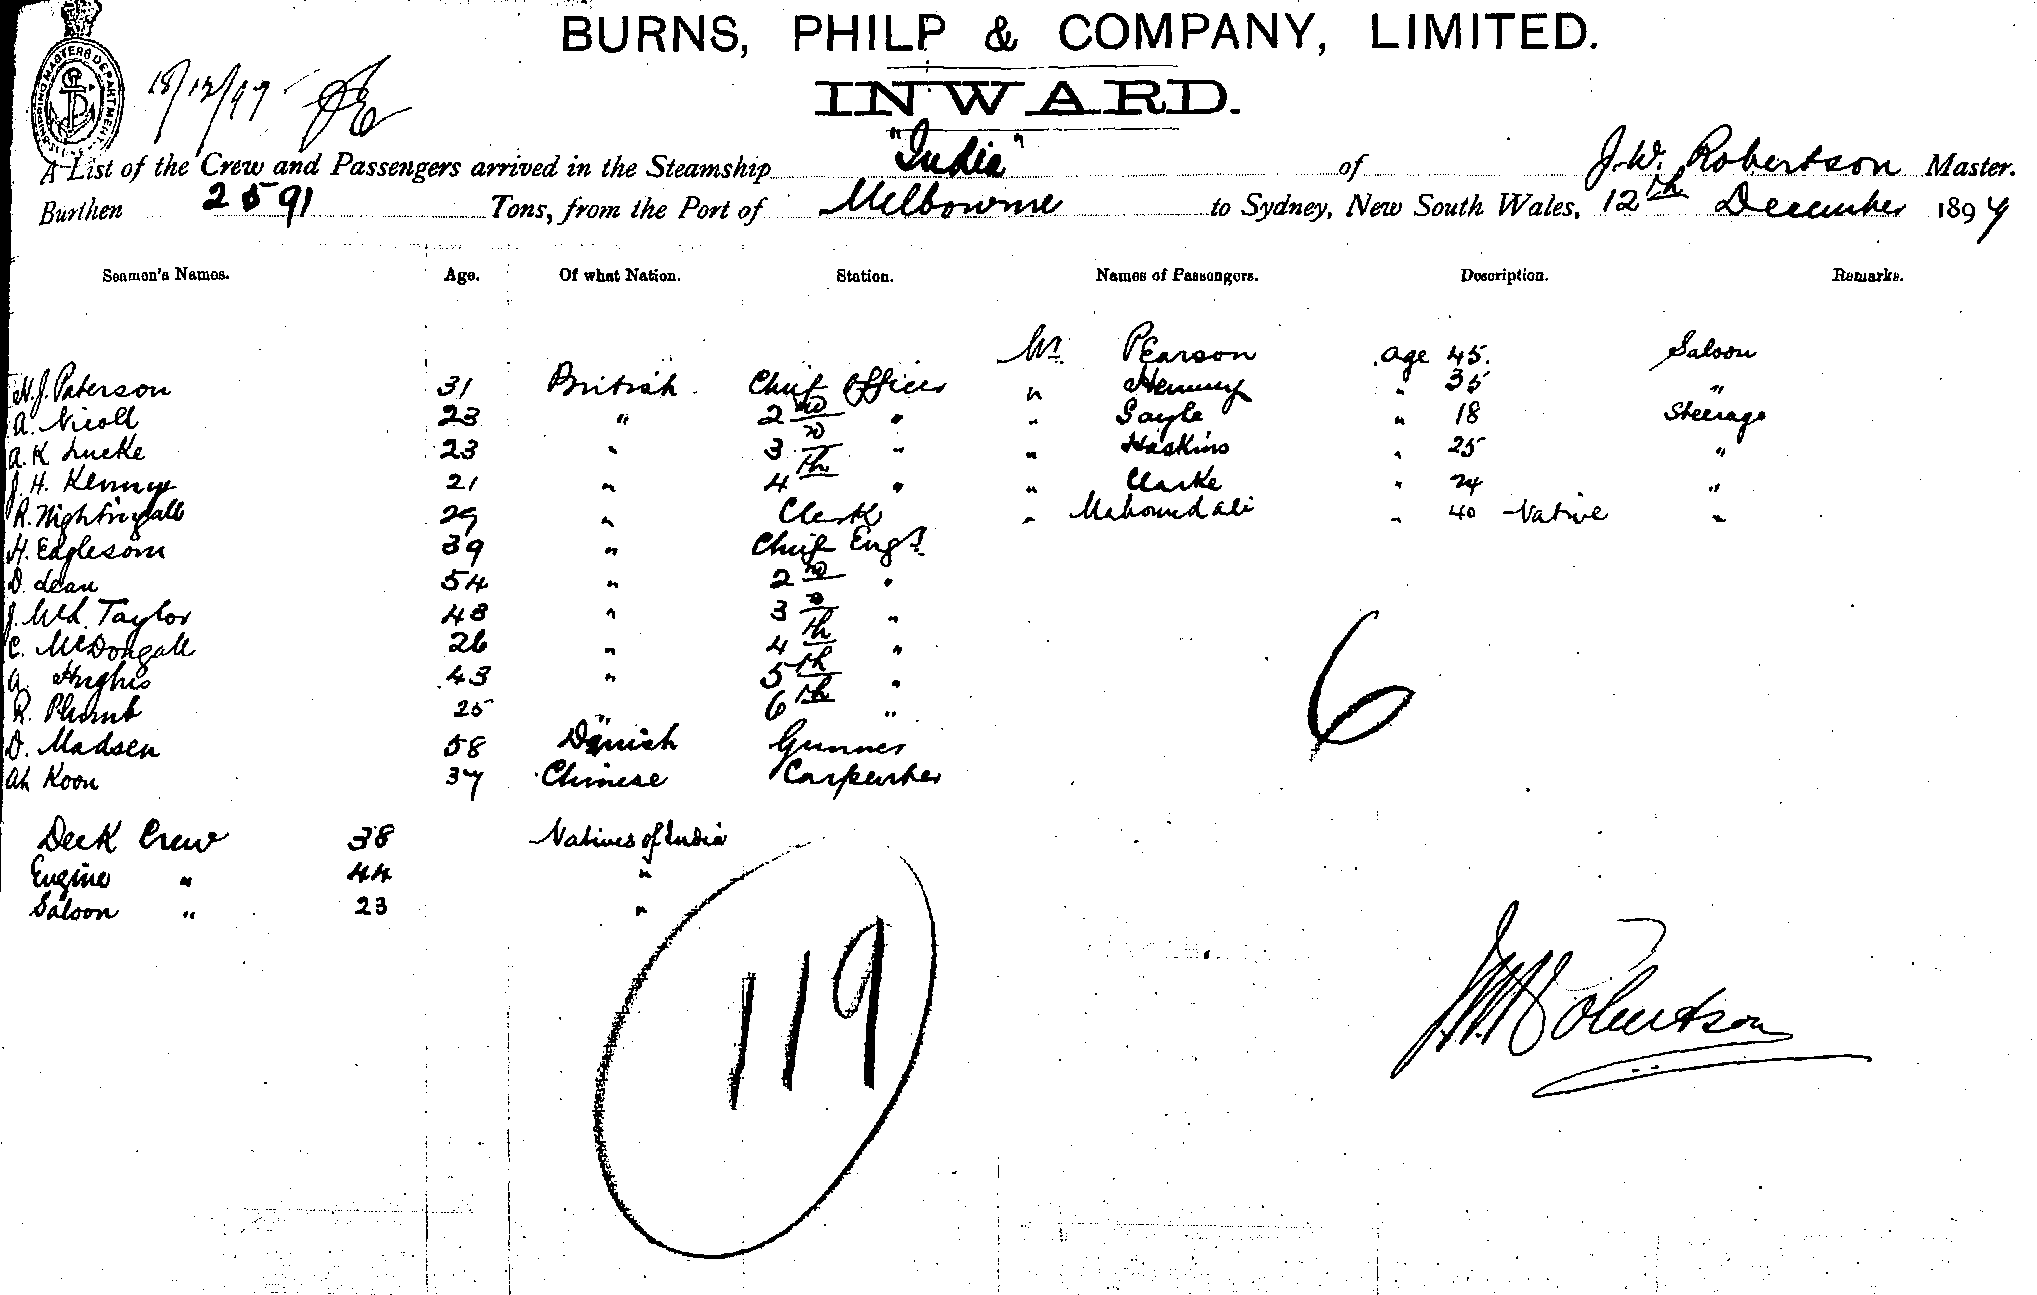 BURNS, PHILP & COMPANY, LIMITED.
INWARD.
SHIPPING MASTERS DEPARTMENT
18/12/97
A List of the Crew and Passengers arrived in the Steamship "India" of J. W. Robertson Master.
Burthen 2591 Tons, from the Port of Melbourne to Sydney, New South Wales, 12th December 1897
Seamen's Names. Age. Of what Nation. Station. Names of Passengers. Description. Remarks.
Mr. Pearson age 45. Saloon
H. J. Paterson 31 British Chief Officer " Hemmy " 35 "
A. Nicoll 23 " 2nd " " Gayle " 18 Steerage
A. K Lucke 23 " 3rd " " Haskins " 25 "
J. H. Kenny 21 " 4th " " Clarke " 24 "
R. Nightingall 29 " Clerk " Mahoumd Ali " 40 Native "
H. Eaglesom 39 " Chief Engr.
D. Lean 54 " 2nd "
J. Taylor 48 " 3rd "
C. McDongall 26 " 4th "
A. Hughes 43 " 5th "
R. Plumb 25 " 6th "
D. Madsen 58 Danish Gunner
Ah Koon 37 Chinese Carpenter
6
Deck Crew 38 Natives of India
Engine " 44 "
Saloon " 23 "
119
J. W. Robertson